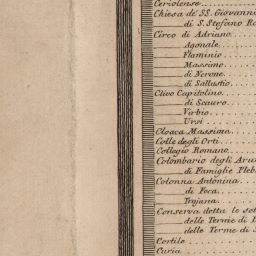 Ceriolense
Chiesa de' SS. Giovanni
di S. Stefano Ro
Circo di Adriano
Agonale
Flaminio
Massimo
di Nerone
di Sallustio
Clivo Capitolino
di Scauro
Virbio
Ursi
Cloaca Massima
Colle degli Orti
Collegio Romano
Colombario degli Arun
di Famiglie Pleb
Colonna Antonina
di Foca
Trajana
Conserva detta le set
delle Terme di
delle Terme di
Cortile
Curia